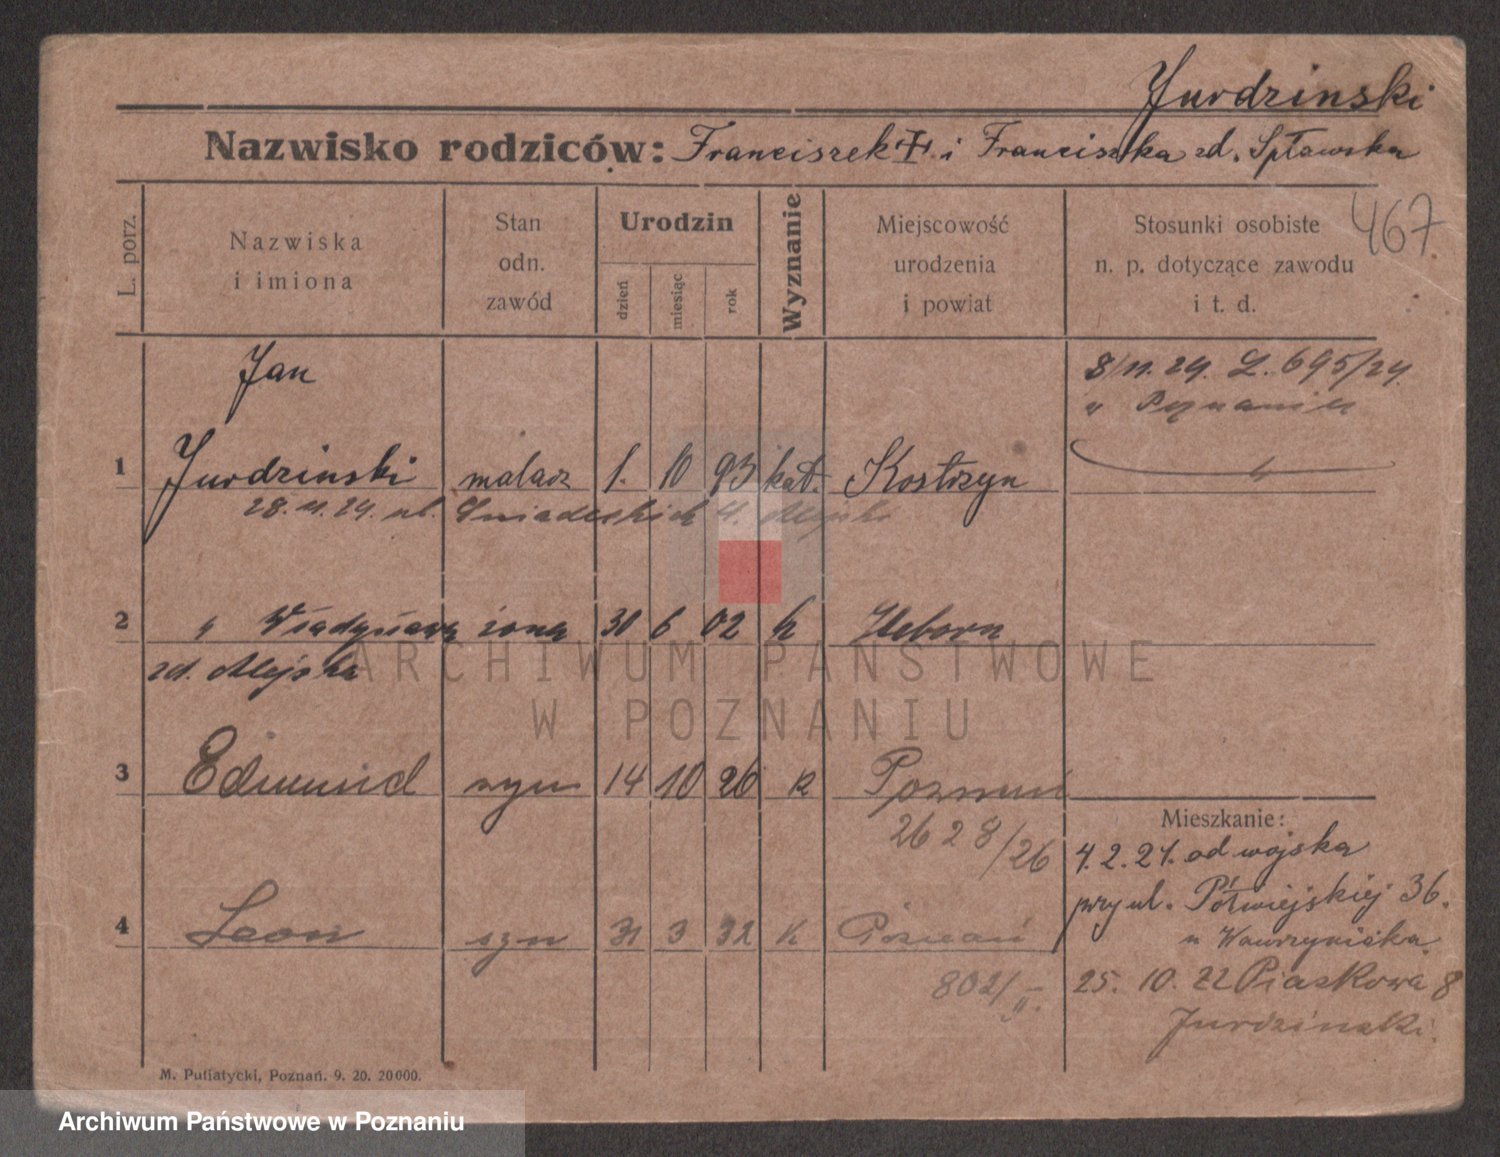 Jurdzinski
Nazwisko rodziców: Franciszek + i Franciszka zd. Spławska
467
L. porz.
Nazwiska
i imiona
Stan
odn.
zawód
Urodzin
dzień
miesiąc
rok
Wyznanie
Miejscowość
urodzenia
i powiat
Stosunki osobiste
n. p. dotyczące zawodu
i t. d.
Jan
8/11. 24. L. 695/24.
w Poznaniu
1 Jurdzinski malarz 1. 10 93 kat. Kostrzyn
28. 11. 24. ul. Śniadeckich
2 " Władysława żona 30 6 02 k
zd. Alejska
ARCHIWUM PAŃSTWOWE
W POZNANIU
3 Edmund syn 14 10 26 k Poznań
2628/26
Mieszkanie:
4. 2. 21. od wojska
przy ul. Półwiejskiej 36.
4 Leon syn 31 3 32 k Poznań
u Wawrzyniaka
802/II.
25. 10. 22 Piaskowa 8
Jurdzinski.
M. Putiatycki, Poznań. 9. 20. 20000.
Archiwum Państwowe w Poznaniu